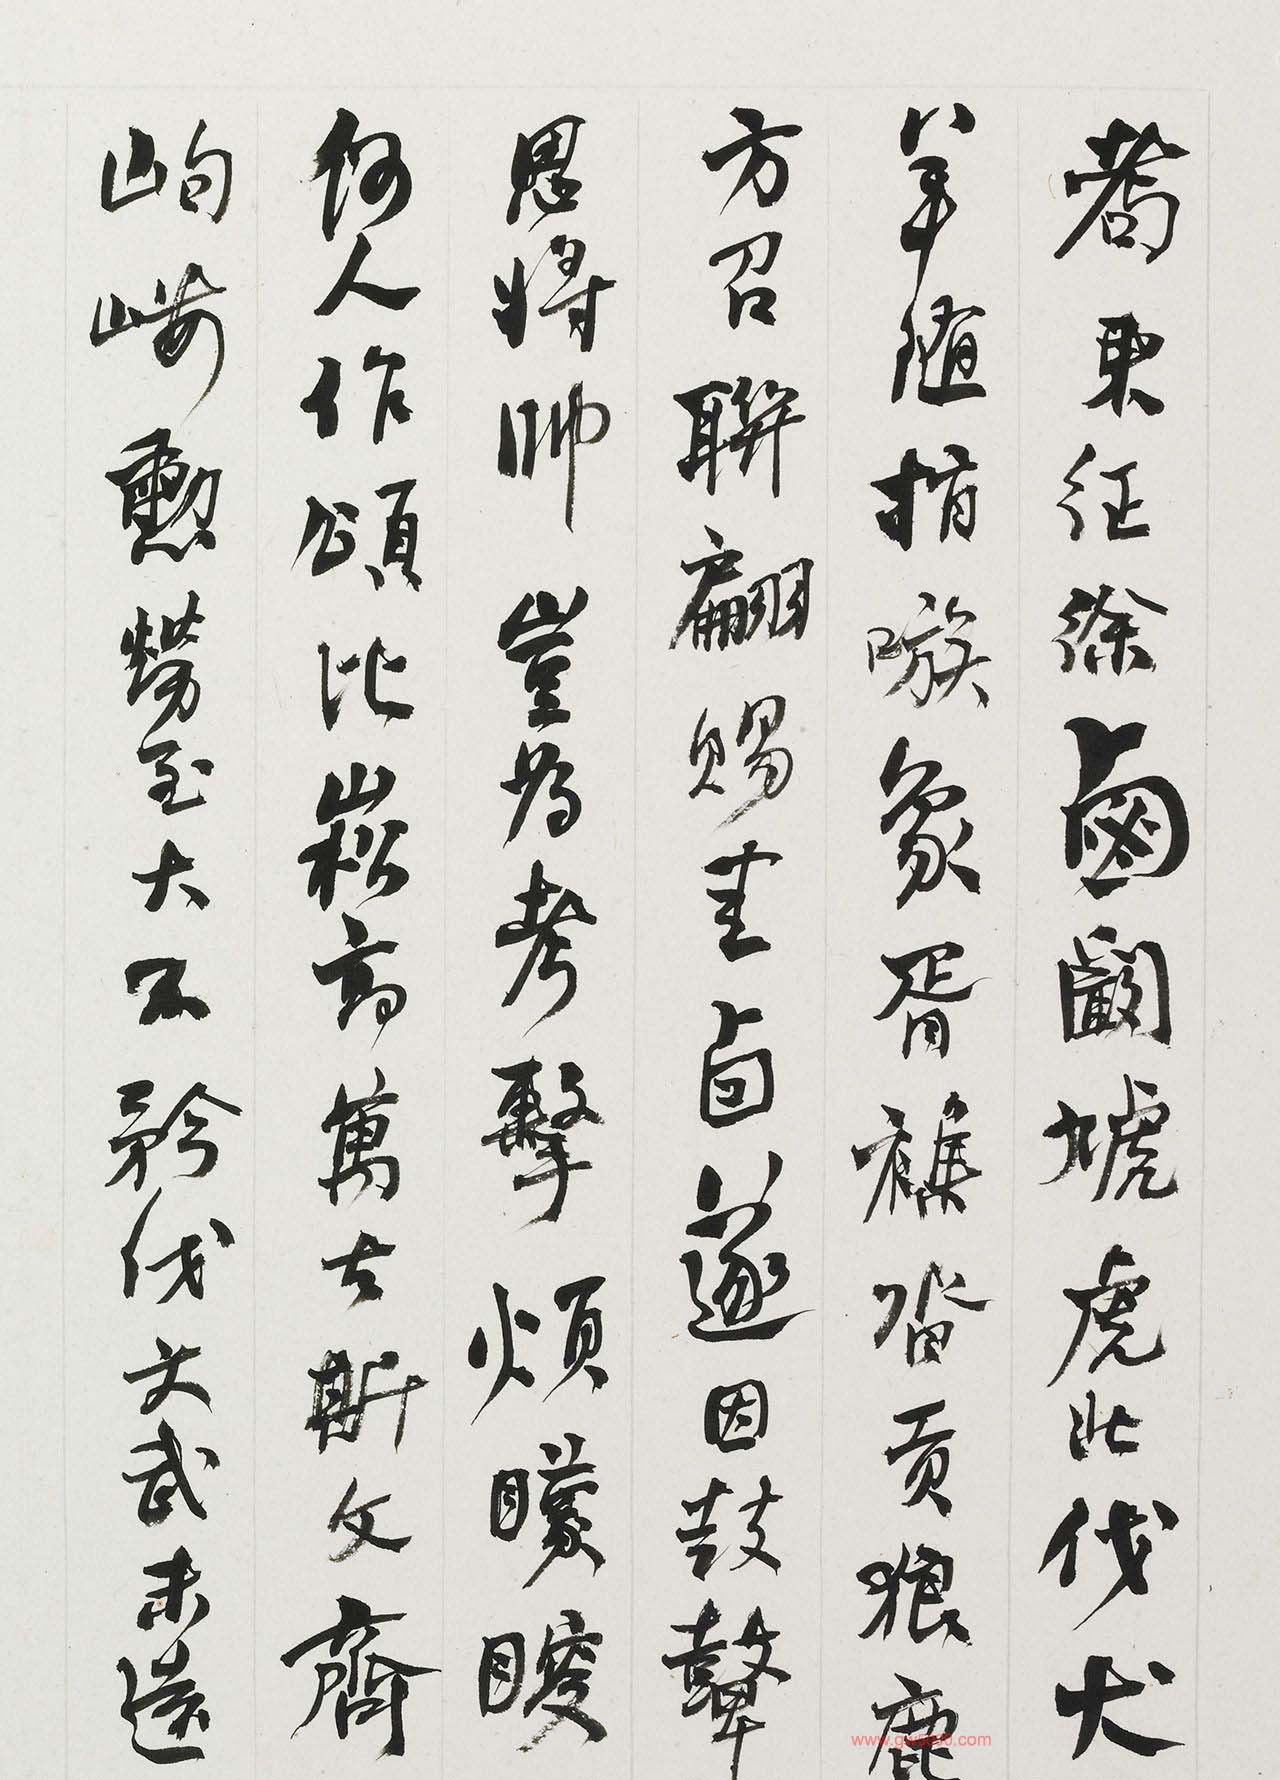 耇東征徐鹵闞虓虎北伐犬
羊隨指嗾象胥襍沓貢狼鹿
方召聯翩賜圭卣遂因鼓鼙
思將帥豈為考擊煩矇瞍
何人作頌比崧高萬古斯文齊
岣嶁勳勞至大不矜伐文武未遠
www.gw5000.com